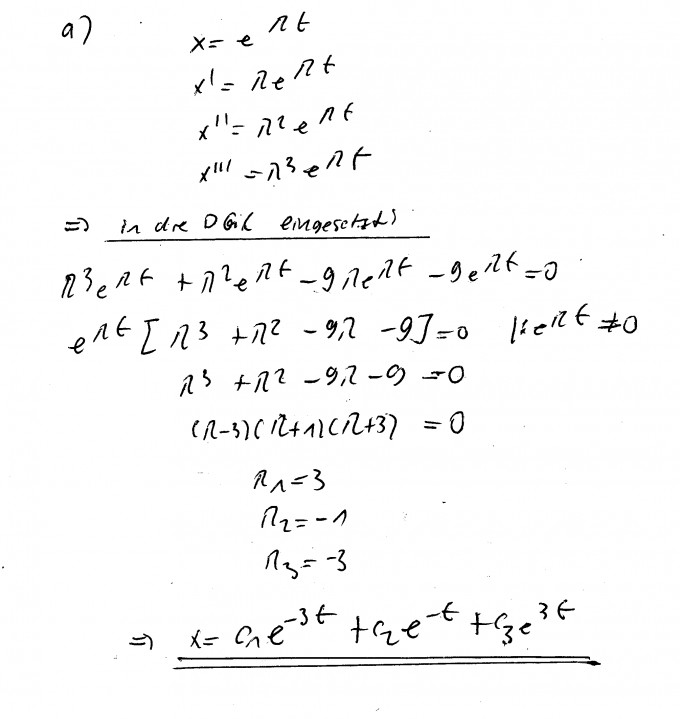 a)
x = e^{λt}
x' = λe^{λt}
x'' = λ² e^{λt}
x''' = λ³ e^{λt}
⇒ in die DGL eingesetzt:
λ³e^{λt} + λ²e^{λt} - 9λe^{λt} - 9e^{λt} = 0
e^{λt} [λ³ + λ² - 9λ - 9] = 0 |: e^{λt} ≠ 0
λ³ + λ² - 9λ - 9 = 0
(λ-3)(λ+1)(λ+3) = 0
λ₁ = 3
λ₂ = -1
λ₃ = -3
⇒ x = c₁e^{-3t} + c₂e^{-t} + c₃e^{3t}